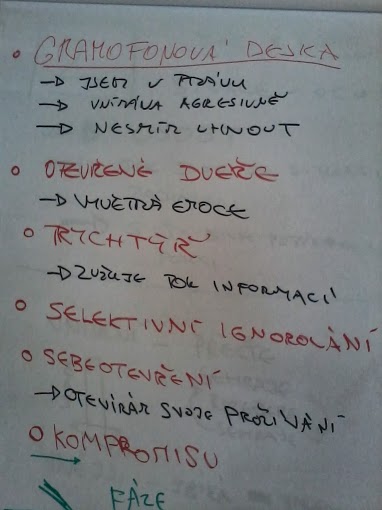 GRAMOFONOVÁ DESKA
→ JSEM V PRÁVU
→ VNÍMÁNA AGRESIVNĚ
→ NESMÍM UHNOUT
OTEVŘENÉ DVEŘE
→ VNITŘNÍ EMOCE
TRYCHTÝŘ
→ ZUŽUJE TOK INFORMACÍ
SELEKTIVNÍ IGNOROVÁNÍ
SEBEOTEVŘENÍ
→ OTEVÍRÁM SVOJE PROŽÍVÁNÍ
KOMPROMISU
FÁZE